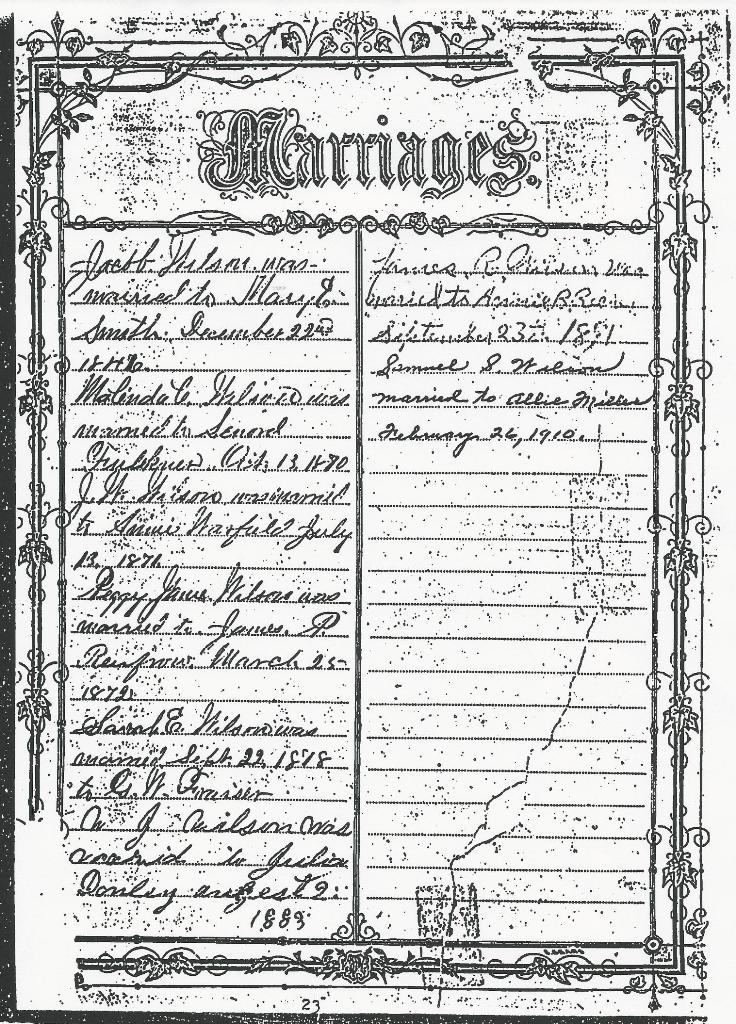 Marriages
Jacob Wilson was
married to Mary E
Smith. December 22nd
1846.
Malinda C. Wilson was
married to Senord
Faulkner Oct. 13, 1870
J. W. Wilson was married
to Annie Warfield July
13, 1871
Peggy Jane Wilson was
married to James. P.
Renfrow. March 25
1872.
Sarah E. Wilson was
married Sept. 22, 1878
to G. W. Fraiser
W J Wilson was
married to Julia
Donley augest 2:
1883
James R. was
married to Annie B.
September 23rd 1891
Samuel S. Wilson
married to Allie Miller
February 26, 1910.
23